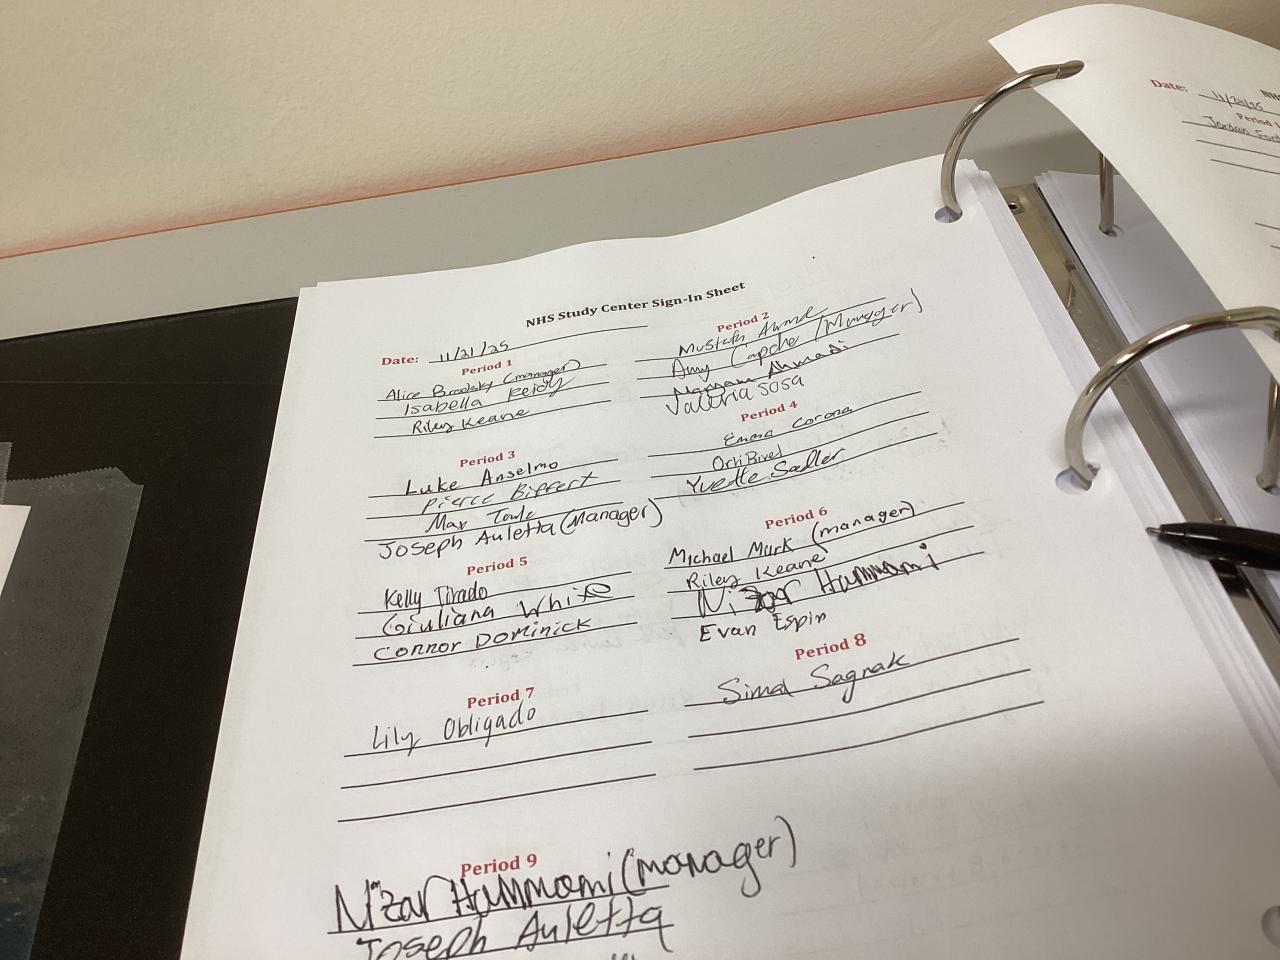 NHS Study Center Sign-In Sheet
Date: 11/21/25
Period 1
Alice Brodsky (manager)
Isabella Reidy
Riley Keane
Period 2
Mustafa Ahmed
Amy Capche (Manager)
Maryam Ahmadi
Valeria Sosa
Period 3
Luke Anselmo
Pierce Biffert
Max
Joseph Auletta (Manager)
Period 4
Emma Corona
Yvette Sadler
Period 5
Kelly Tirado
Giuliana White
Connor Dominick
Period 6
Michael Murk (manager)
Riley Keane
Nizar Hammami
Evan Espin
Period 7
Lily Obligado
Period 8
Simal Sagnak
Period 9
Nizar Hammami (manager)
Joseph Auletta
Date: 11/24/25
NHS
Period 1
Jordan